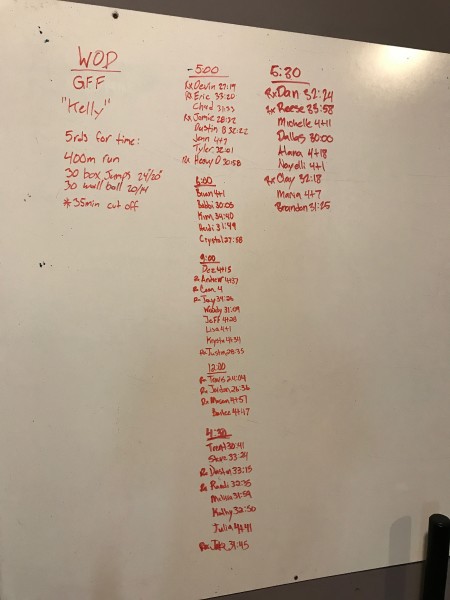 WOD
GFF
"Kelly"
5rds for time:
400m run
30 box jumps 24/20"
30 wall ball 20/14
*35min cut off
5:00
Rx Devin 27:19
Rx Eric 33:20
Chad 31:33
Rx Jamie 28:32
Dustin B 32:22
Jenn 4+7
Tyler 32:01
Rx Heavy D 30:58
8:00
4+1
Bobbi 30:08
Kim 34:40
Heidi 31:49
Crystal 27:58
9:00
Dez 4+15
Rx Andrew 4+37
Rx Cam 4
Rx Jay 34:26
Wendy 31:09
Jeff 4+28
Lisa 4+1
Krysta 4+34
Rx Justin 28:35
12:00
Rx Travis 26:04
Rx Jordan 26:36
Rx Mason 4+57
4+47
4:30
Trent 30:41
Steve 33:24
Rx Dustin 33:15
Rx Randi 32:35
Melissa 34:59
Kathy 32:50
Julia 4+41
Rx Jake 31:45
5:30
Rx Dan 32:24
Rx Reese 35:58
Michelle 4+11
Dallas 30:00
Alana 4+18
Nayelli 4+1
Rx Clay 32:18
Maria 4+7
Brandon 31:25